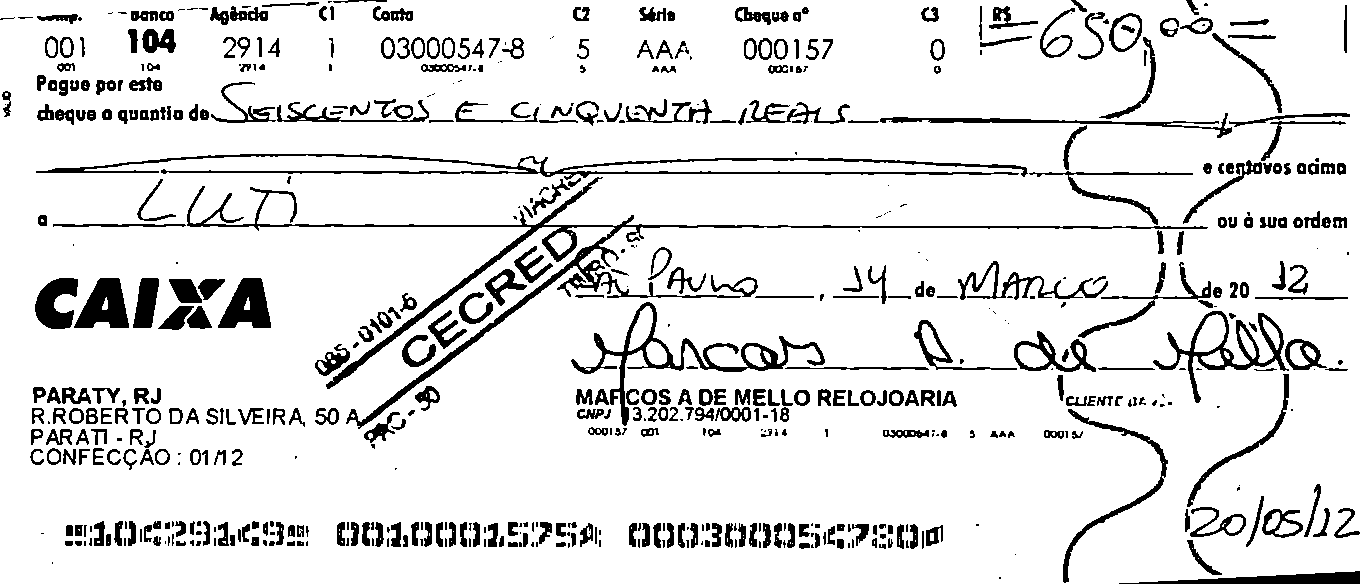 Comp. Banco Agência C1 Conta C2 Série Cheque nº C3 R$
001 104 2914 1 03000547-8 5 AAA 000157 0 =650,00=
001 104 2914 1 03000547-8 5 AAA 000157 0
Pague por este
cheque a quantia de SEISCENTOS E CINQUENTA REAIS
e centavos acima
a LUTI ou à sua ordem
VIACRED
CECRED
085-0101-6
PAC - 90
PAULO, 14 de MARÇO de 20 12
CAIXA
Marcos A. de Mello.
PARATY, RJ
R.ROBERTO DA SILVEIRA, 50 A
PARATI - RJ
CONFECÇÃO : 01/12
MARCOS A DE MELLO RELOJOARIA
CNPJ 13.202.794/0001-18
CLIENTE
000157 001 104 2914 1 03000547-8 5 AAA 000157
20/05/12
10429149 0010001575 000300054780